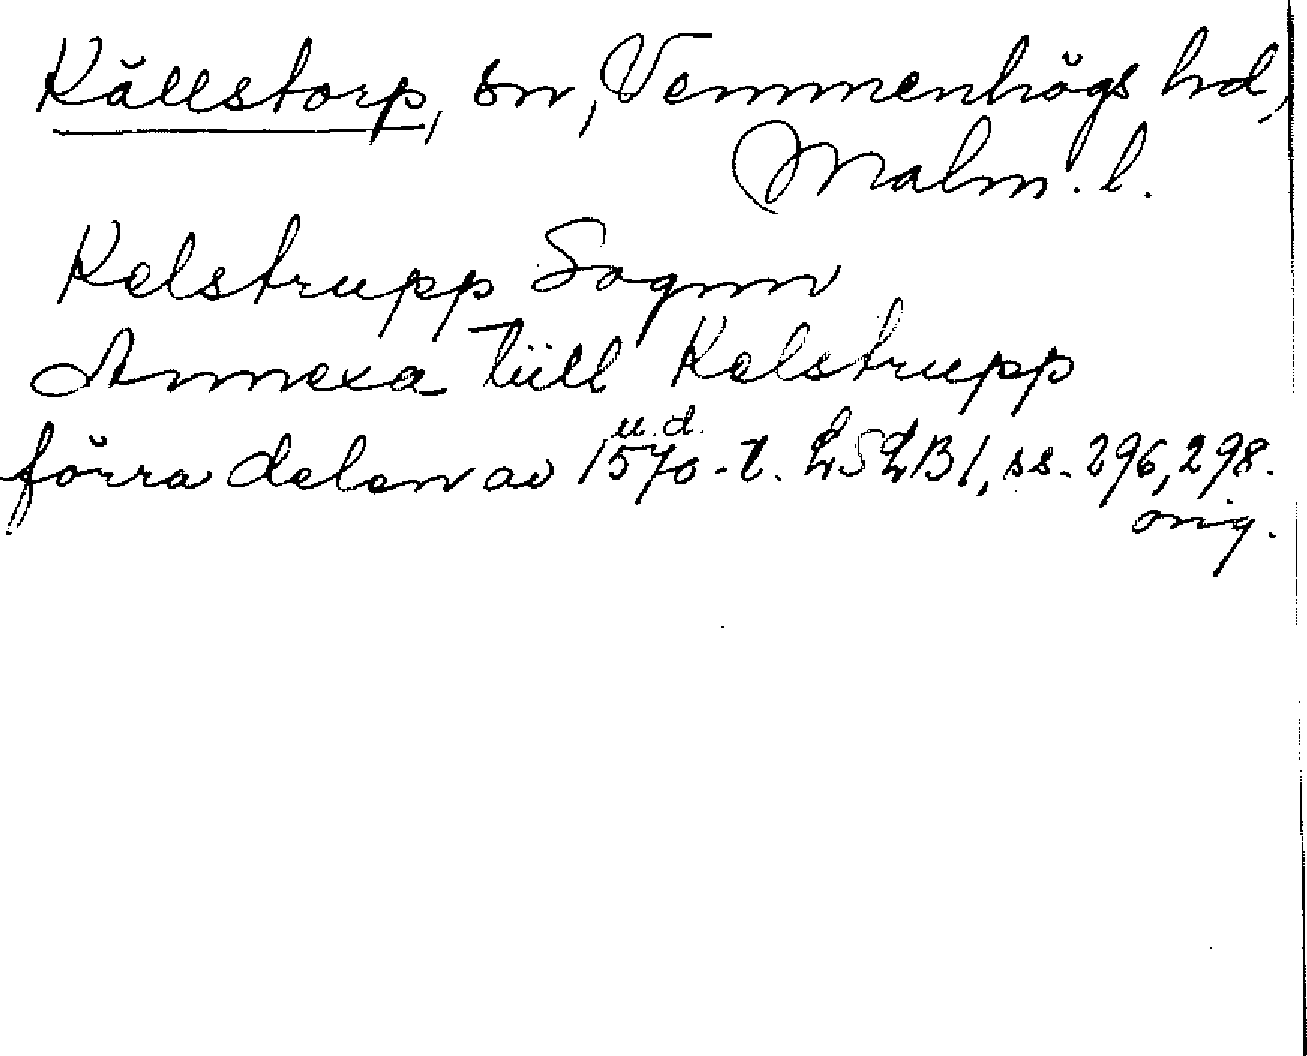 Källstorp, sn, Vemmenhögs hd,
Malm. l.
Kelstrupp Sognn
Annexa tüll Kelstrupp
u. d.
förra delen av 1570-t. LSLB1, ss. 296, 298.
orig.